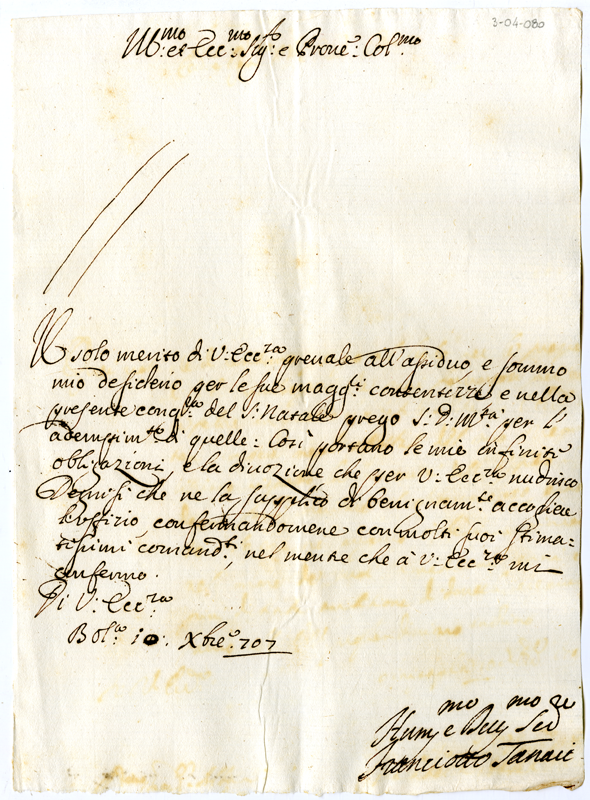 3-04-080
Ill:mo et Ecc:mo Sig:r e Prone: Col:mo
Il solo merito di V: Ecc:za preuale all'assiduo, e sommo
mio desiderio per le sue magg:ri contentezze e nella
presente cong:ra del S: Natale prego S: D: M:ta per l'
adempim:to di quelle: Così portano le mie infinite
obligazioni, e la diuozione che per V: Ecc:za nudrisco
Degnisi che ne la supplico di benignam:te accogliere
l'uffizio, confermandomene con molti suoi stima-
tissimi comand:ti, nel mentre che à V: Ecc:za mi
confermo.
Di V: Ecc:za
Bol:a 10: Xbre 707
Hum:mo e Deu:mo Ser:re
Francio Tanari